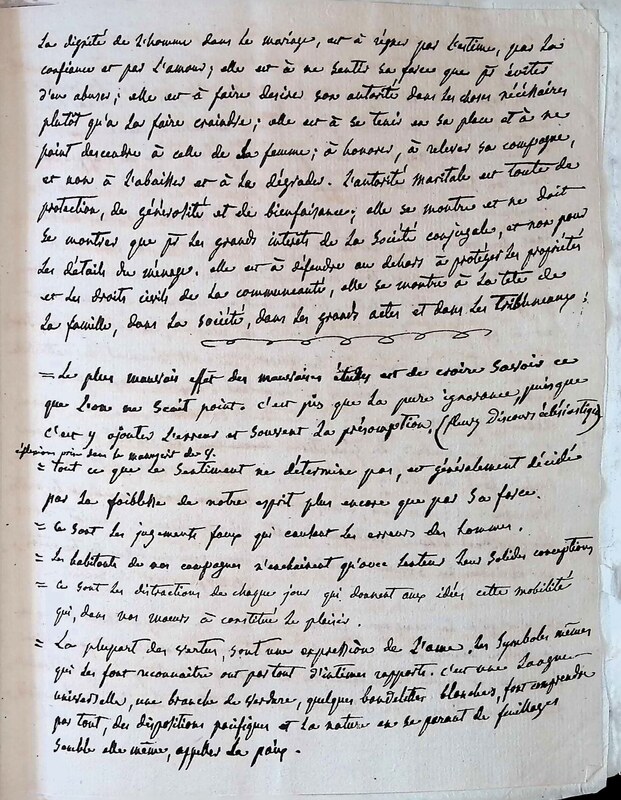 La dignité de L'homme dans le mariage, est à régner par L'estime, par La
confiance et par L'amour; elle est à ne sentir sa force que pr éviter
d'en abuser; elle est à faire desirer son autorité dans les choses nécéssaires
plutôt qu'à La faire craindre; elle est à se tenir en sa place et à ne
point descendre à celle de La femme; à honorer, à relever sa compagne,
et non à L'abaisser et à La dégrader. L'autorité maritale est toute de
protection, de générosité et de bienfaisance; elle se montre et ne doit
se montrer que pr Les grands interets de La Société conjugale, et non pour
Les détails du menage. elle est à défendre au dehors à protéger Les propriétés
et Les droits civils de La communauté, elle se montre à La tete de
La famille, dans La société, dans Les grands actes et dans Les Tribunaux!
= Le plus mauvais effet des mauvaises études est de croire Savoir ce
que L'on ne Scait point. c'est pis que La pure ignorance, puisque
c'est y ajouter L'erreur et souvent La présomption. (fleury Discours éclésiastique)
réflexions pris dans le manuscrit de
= Tout ce que Le Sentiment ne détermine pas, est généralement décidé
par La foiblesse de notre esprit plus encore que par Sa force.
= Ce sont Les jugements faux qui causent Les erreurs des hommes.
= Les habitants de nos campagnes n'enchainent qu'avec Lenteur Leurs Solides conceptions
= Ce sont Les distractions de chaque jour qui donnent aux idées cette mobilité
qui, dans nos moeurs à constitué Le plaisir.
= La plupart des vertus, sont une expression de L'ame. Les Symboles mêmes
qui Les font reconnaitre ont partout d'intimes rapports. c'est une Langue
universelle, une branche de verdure, quelques bandelettes blanches, font comprendre
par tout, des dispositions pacifiques et La nature en se parant de feuillages
Semble elle même, appeller La paix.